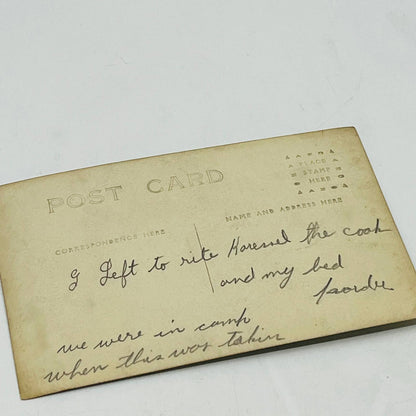 POST CARD
PLACE
STAMP
HERE
CORRESPONDENCE HERE
NAME AND ADDRESS HERE
Left to rite the cook
and my bed
we were in camp
when this was takin